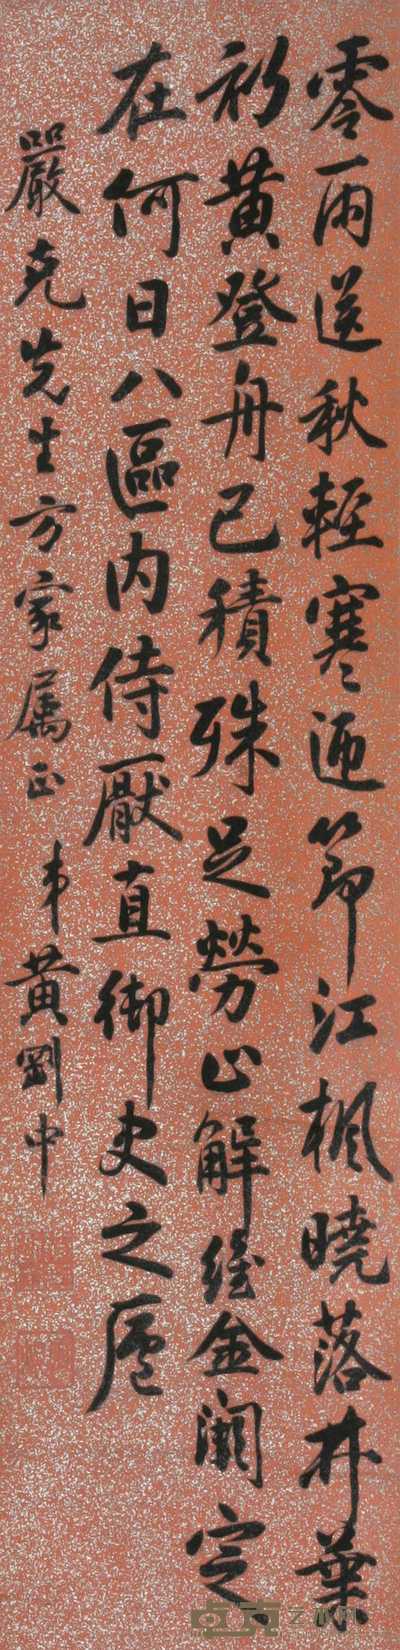 零雨送秋輕寒迎節江楓曉落林葉
初黃登舟已積殊足勞止解維金闕定
在何日八區內侍厭直御史之廬
嚴克先生方家屬正 弟黃劉中